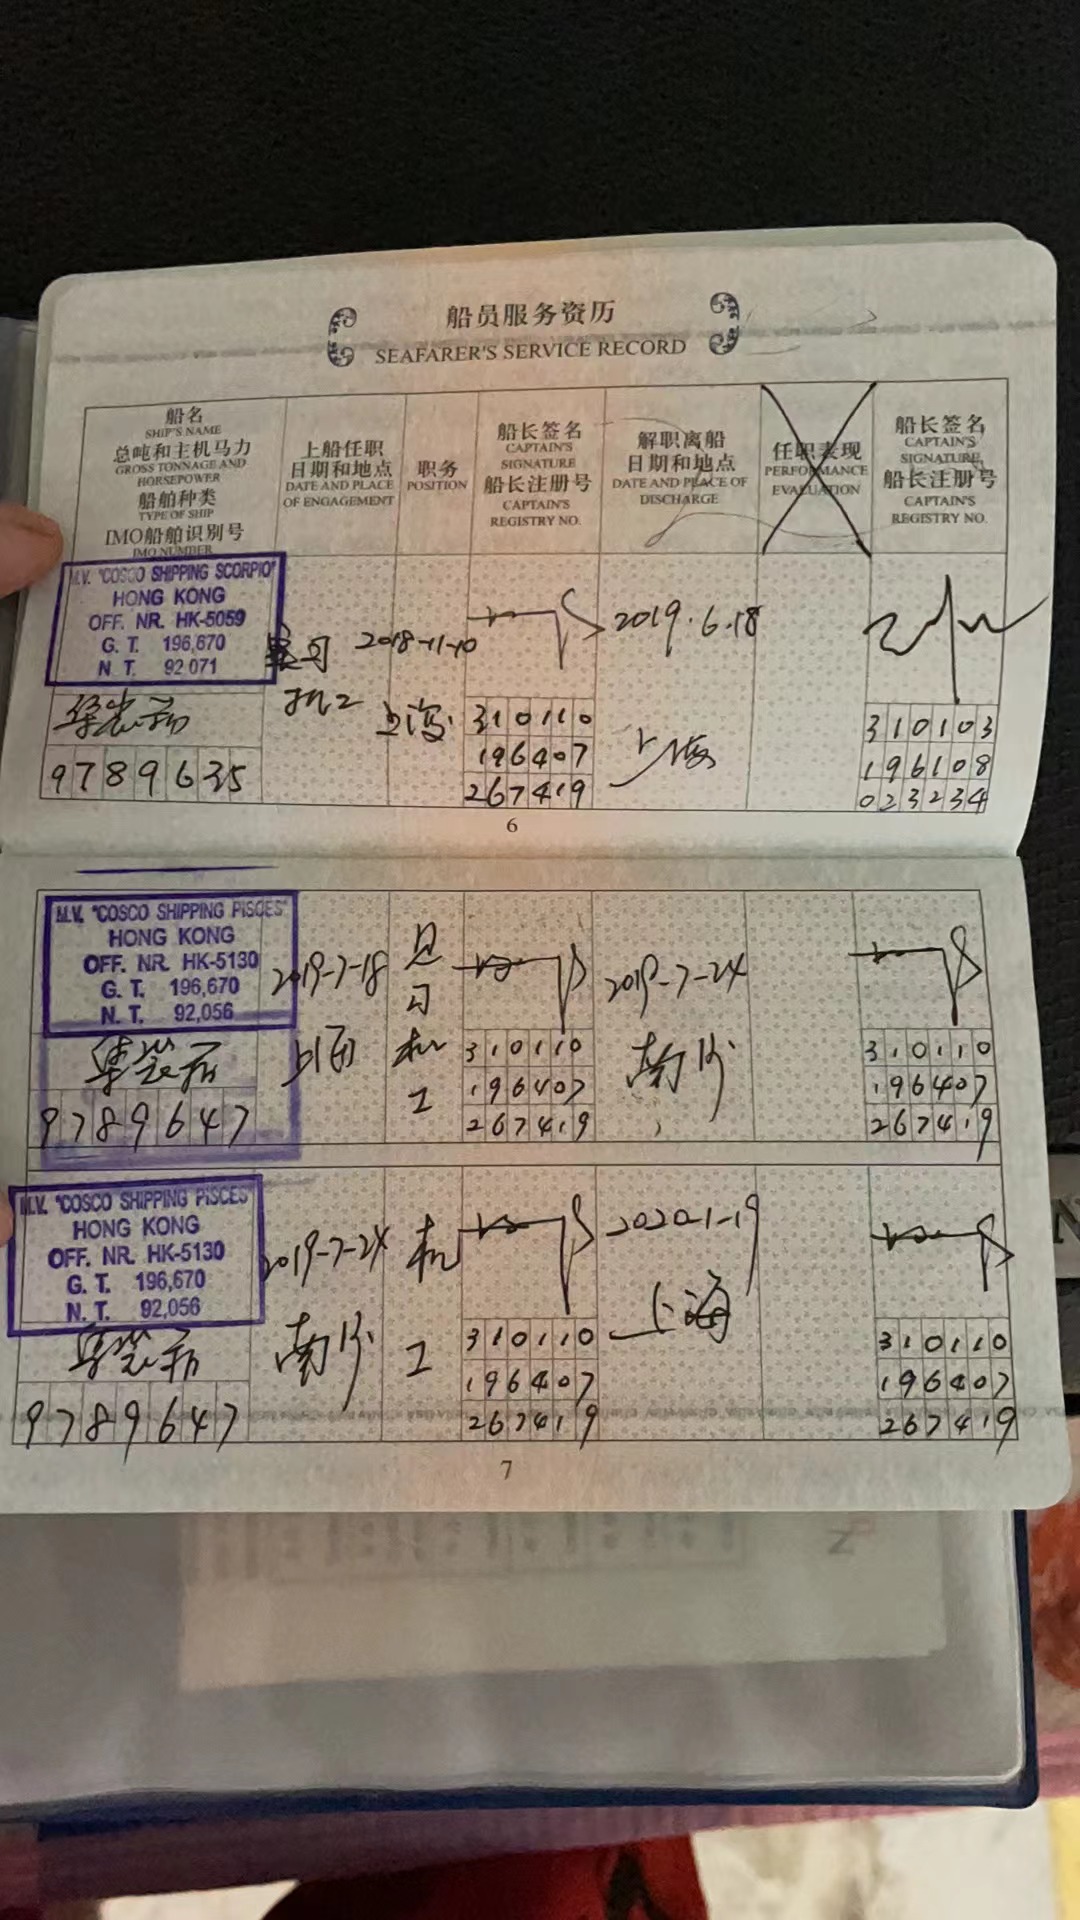 船员服务资历
SEAFARER'S SERVICE RECORD
船名
SHIP'S NAME
总吨和主机马力
GROSS TONNAGE AND
HORSEPOWER
船舶种类
TYPE OF SHIP
IMO船舶识别号
IMO NUMBER
上船任职
日期和地点
DATE AND PLACE
OF ENGAGEMENT
职务
POSITION
船长签名
CAPTAIN'S
SIGNATURE
船长注册号
CAPTAIN'S
REGISTRY NO.
解职离船
日期和地点
DATE AND PLACE OF
DISCHARGE
任职表现
PERFORMANCE
EVALUATION
船长签名
CAPTAIN'S
SIGNATURE
船长注册号
CAPTAIN'S
REGISTRY NO.
M.V. "COSCO SHIPPING SCORPIO"
HONG KONG
OFF. NR. HK-5059
G. T. 196,670
N. T. 92,071
9789635
2018-11-10
上海
310110
196407
267419
2019.6.18
上海
310103
196108
023234
6
M.V. "COSCO SHIPPING PISCES"
HONG KONG
OFF. NR. HK-5130
G. T. 196,670
N. T. 92,056
集装箱
9789647
2019-7-18
见
习
机
工
310110
196407
267419
2019-7-24
南沙
310110
196407
267419
M.V. "COSCO SHIPPING PISCES"
HONG KONG
OFF. NR. HK-5130
G. T. 196,670
N. T. 92,056
集装箱
9789647
2019-7-24
南沙
机
工
310110
196407
267419
2020-1-19
上海
310110
196407
267419
7